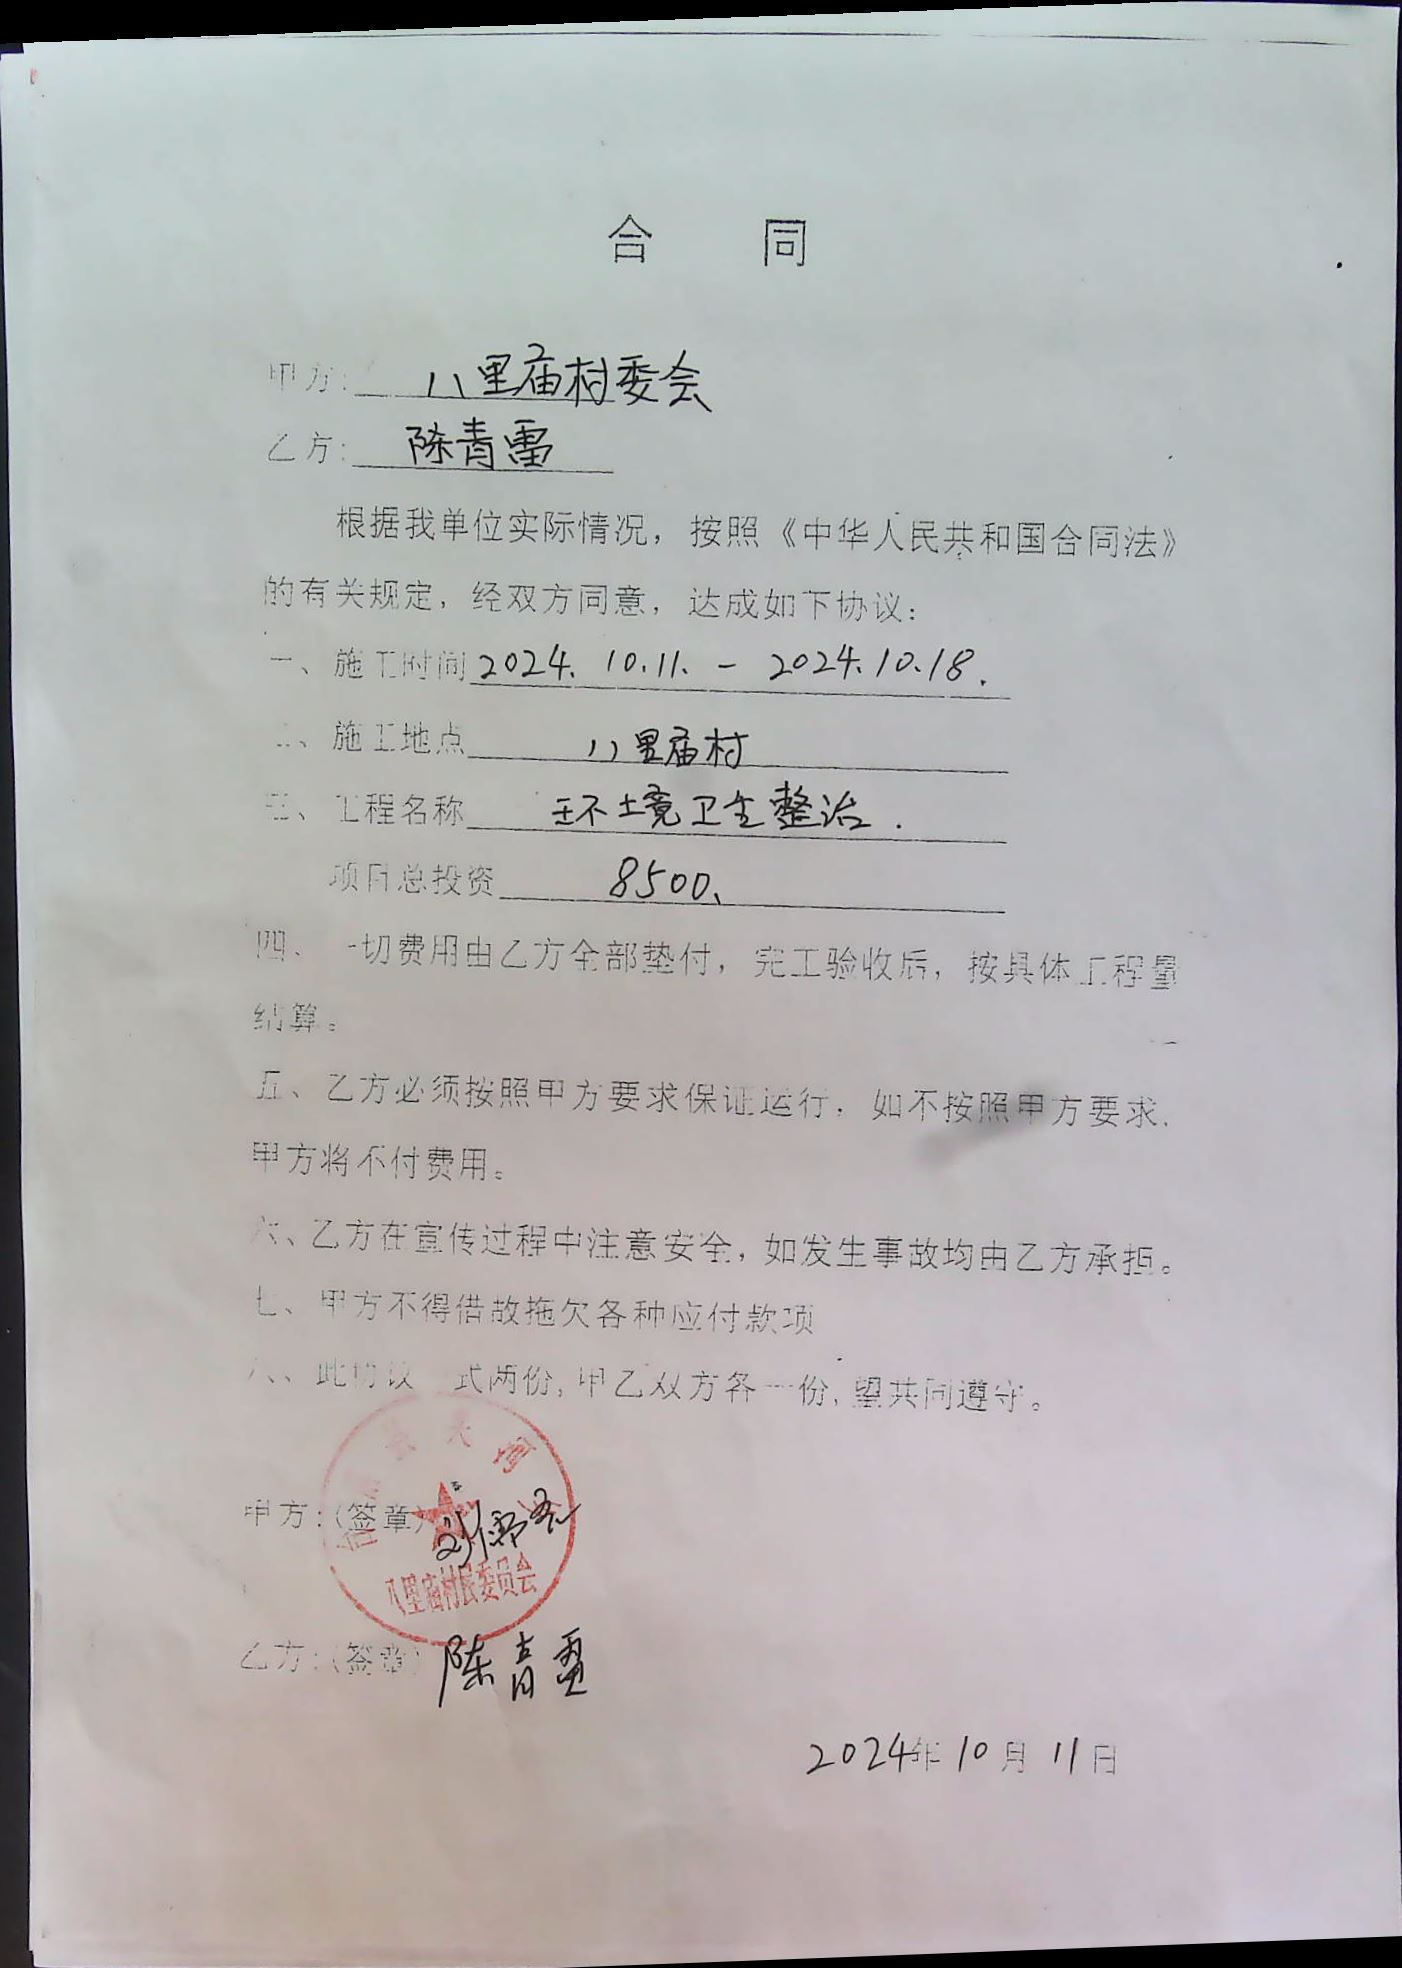 合 同
甲方: 八里庙村委会
乙方: 陈青雷
根据我单位实际情况，按照《中华人民共和国合同法》
的有关规定，经双方同意，达成如下协议：
一、施工时间 2024.10.11. - 2024.10.18.
二、施工地点 八里庙村
三、工程名称 环境卫生整治.
项目总投资 8500、
四、一切费用由乙方全部垫付，完工验收后，按具体工程量
结算。
五、乙方必须按照甲方要求保证运行，如不按照甲方要求，
甲方将不付费用。
六、乙方在宣传过程中注意安全，如发生事故均由乙方承担。
七、甲方不得借故拖欠各种应付款项
八、此协议一式两份，甲乙双方各一份，望共同遵守。
甲方:(签章)
八里庙村民委员会
乙方:(签章) 陈青雷
2024年10月11日